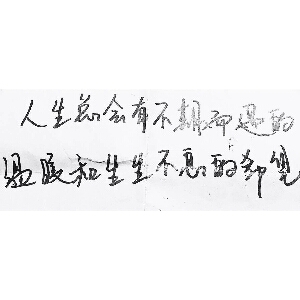 人生总会有不期而遇的
温暖和生生不息的希望